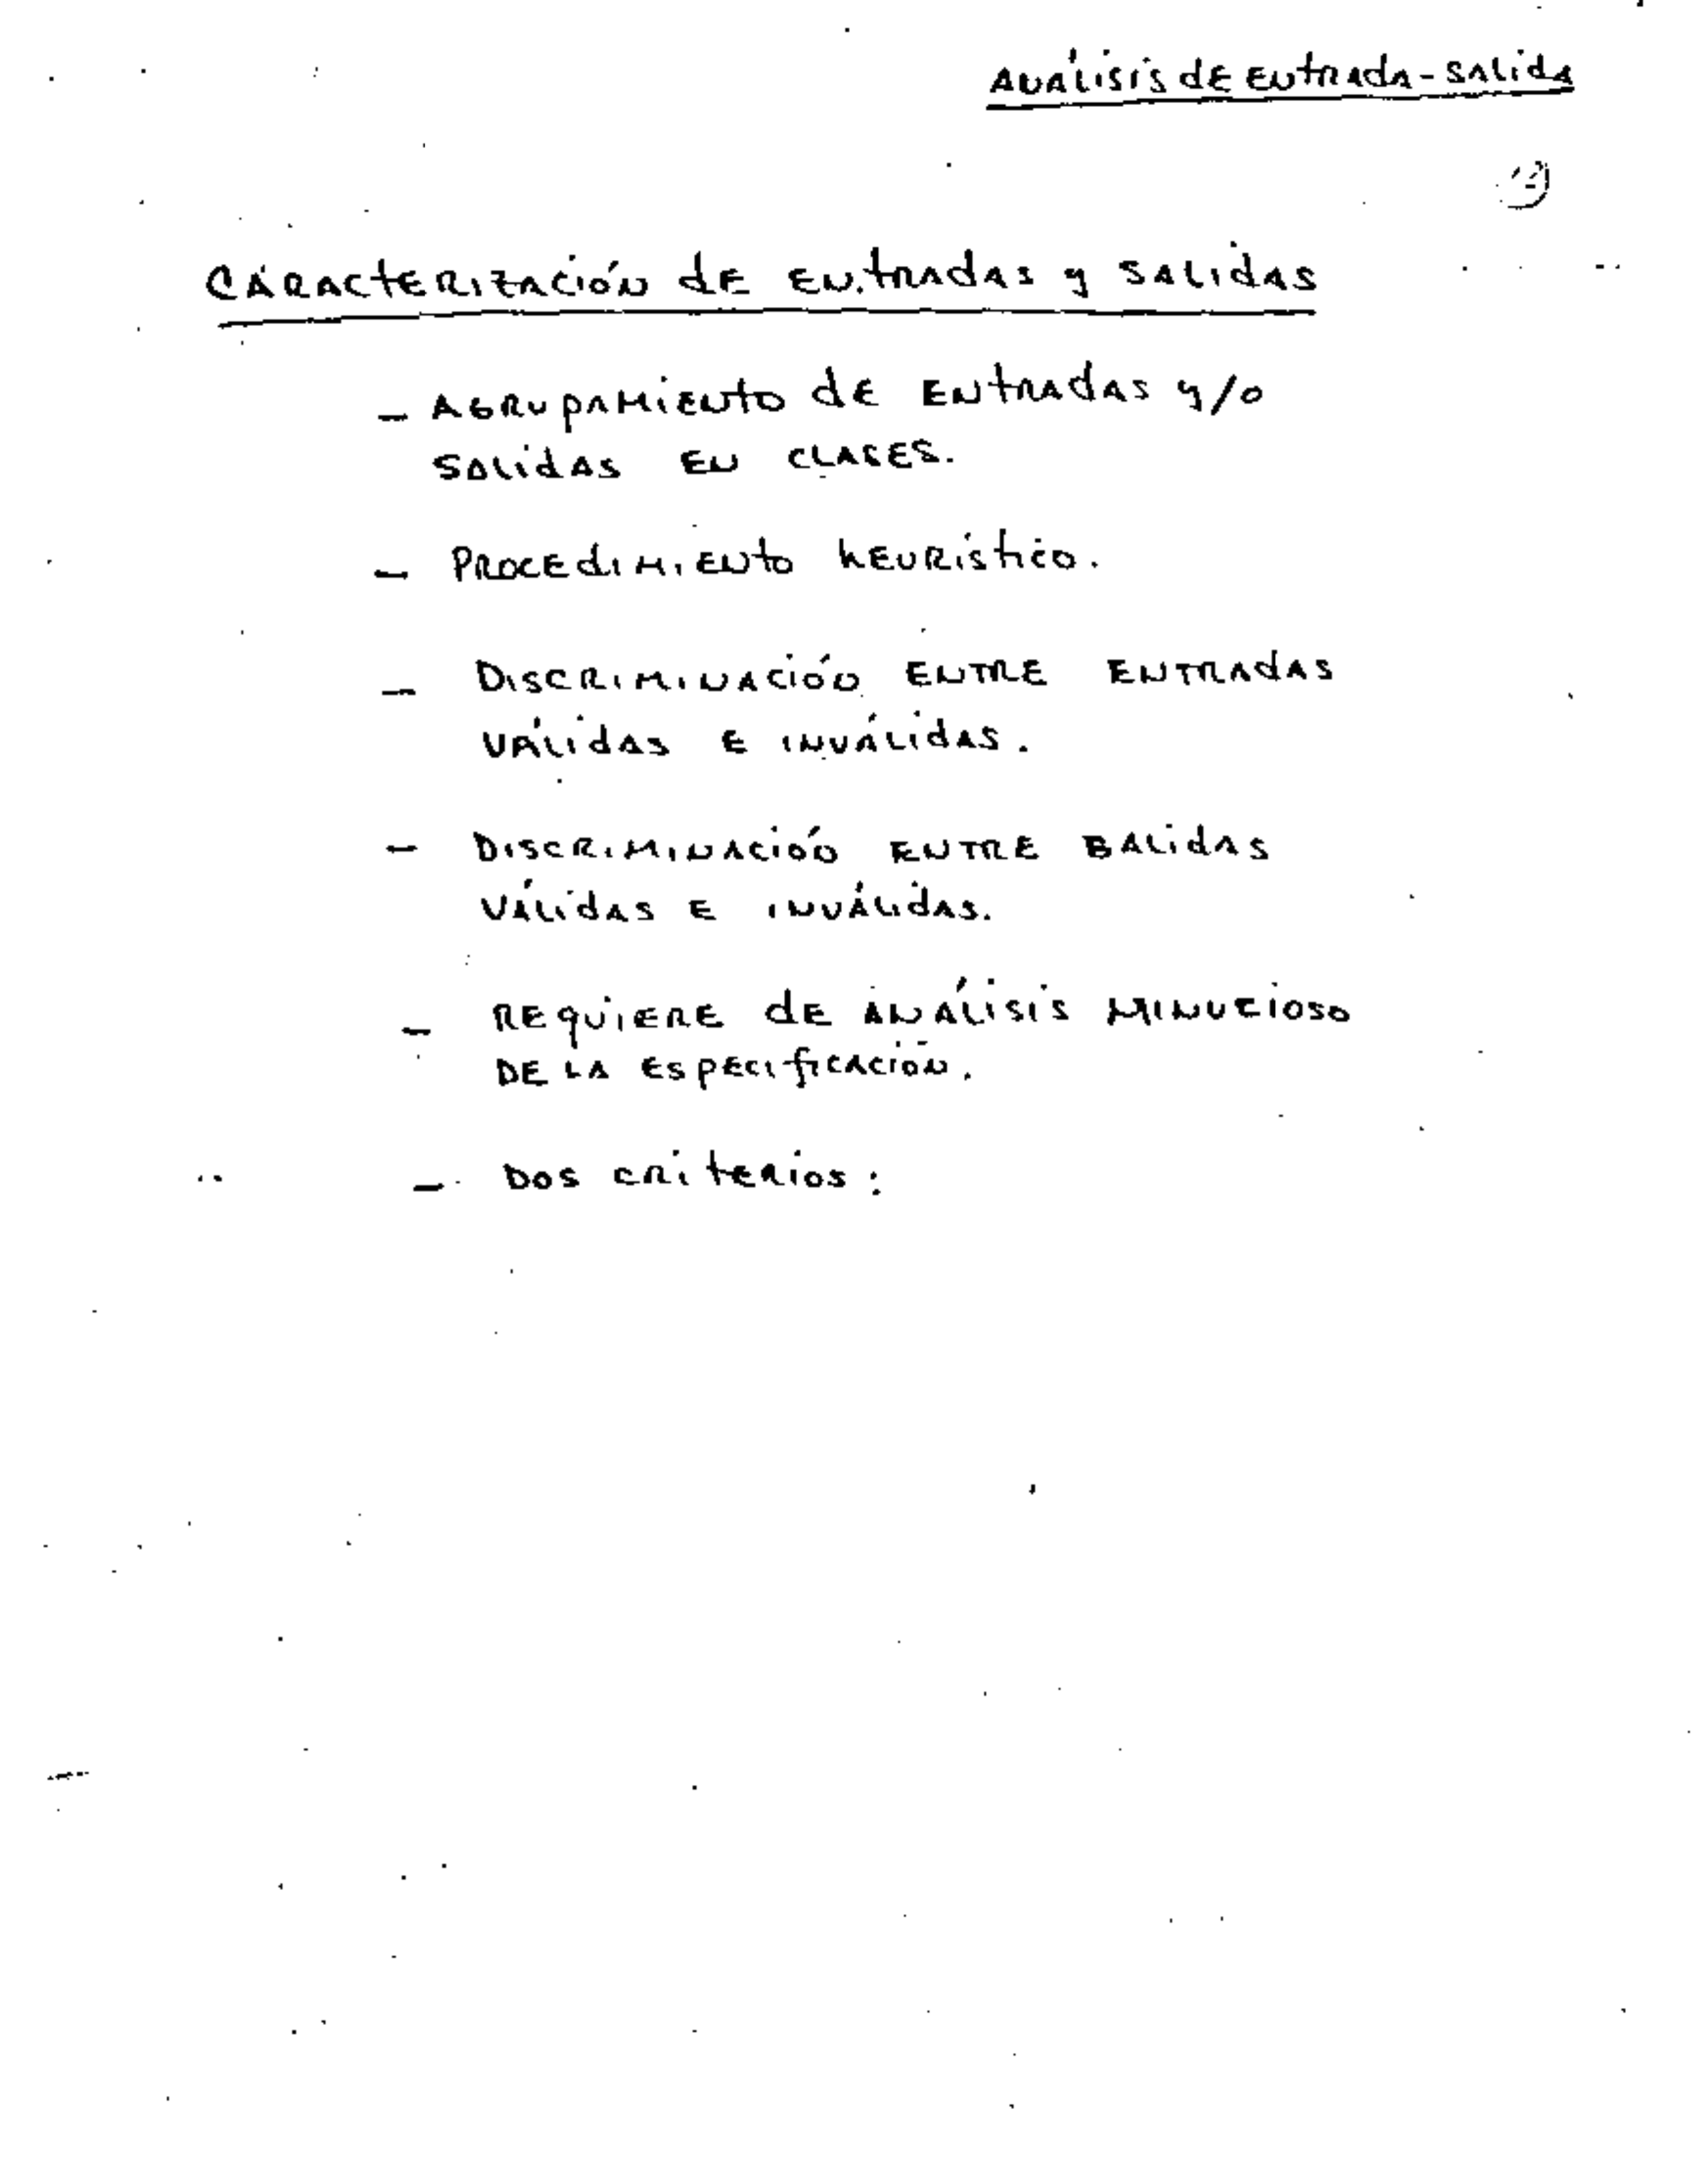 Análisis de Entrada-Salida
Caracterización de Entradas y Salidas
- Agrupamiento de Entradas y/o
Salidas en clases.
- Procedimiento heurístico.
- Discriminación entre entradas
válidas e inválidas.
- Discriminación entre Balidas
válidas e inválidas.
- Requiere de análisis minucioso
de la especificación.
- Dos criterios: